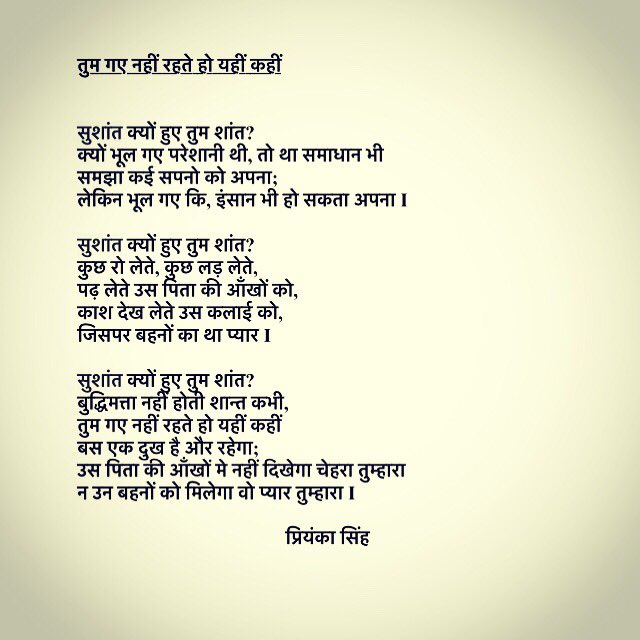 तुम गए नहीं रहते हो यहीं कहीं
सुशांत क्यों हुए तुम शांत?
क्यों भूल गए परेशानी थी, तो था समाधान भी
समझा कई सपनो को अपना;
लेकिन भूल गए कि, इंसान भी हो सकता अपना I
सुशांत क्यों हुए तुम शांत?
कुछ रो लेते, कुछ लड़ लेते,
पढ़ लेते उस पिता की आँखों को,
काश देख लेते उस कलाई को,
जिसपर बहनों का था प्यार I
सुशांत क्यों हुए तुम शांत?
बुद्धिमत्ता नहीं होती शान्त कभी,
तुम गए नहीं रहते हो यहीं कहीं
बस एक दुख है और रहेगा;
उस पिता की आँखों मे नहीं दिखेगा चेहरा तुम्हारा
न उन बहनों को मिलेगा वो प्यार तुम्हारा I
प्रियंका सिंह